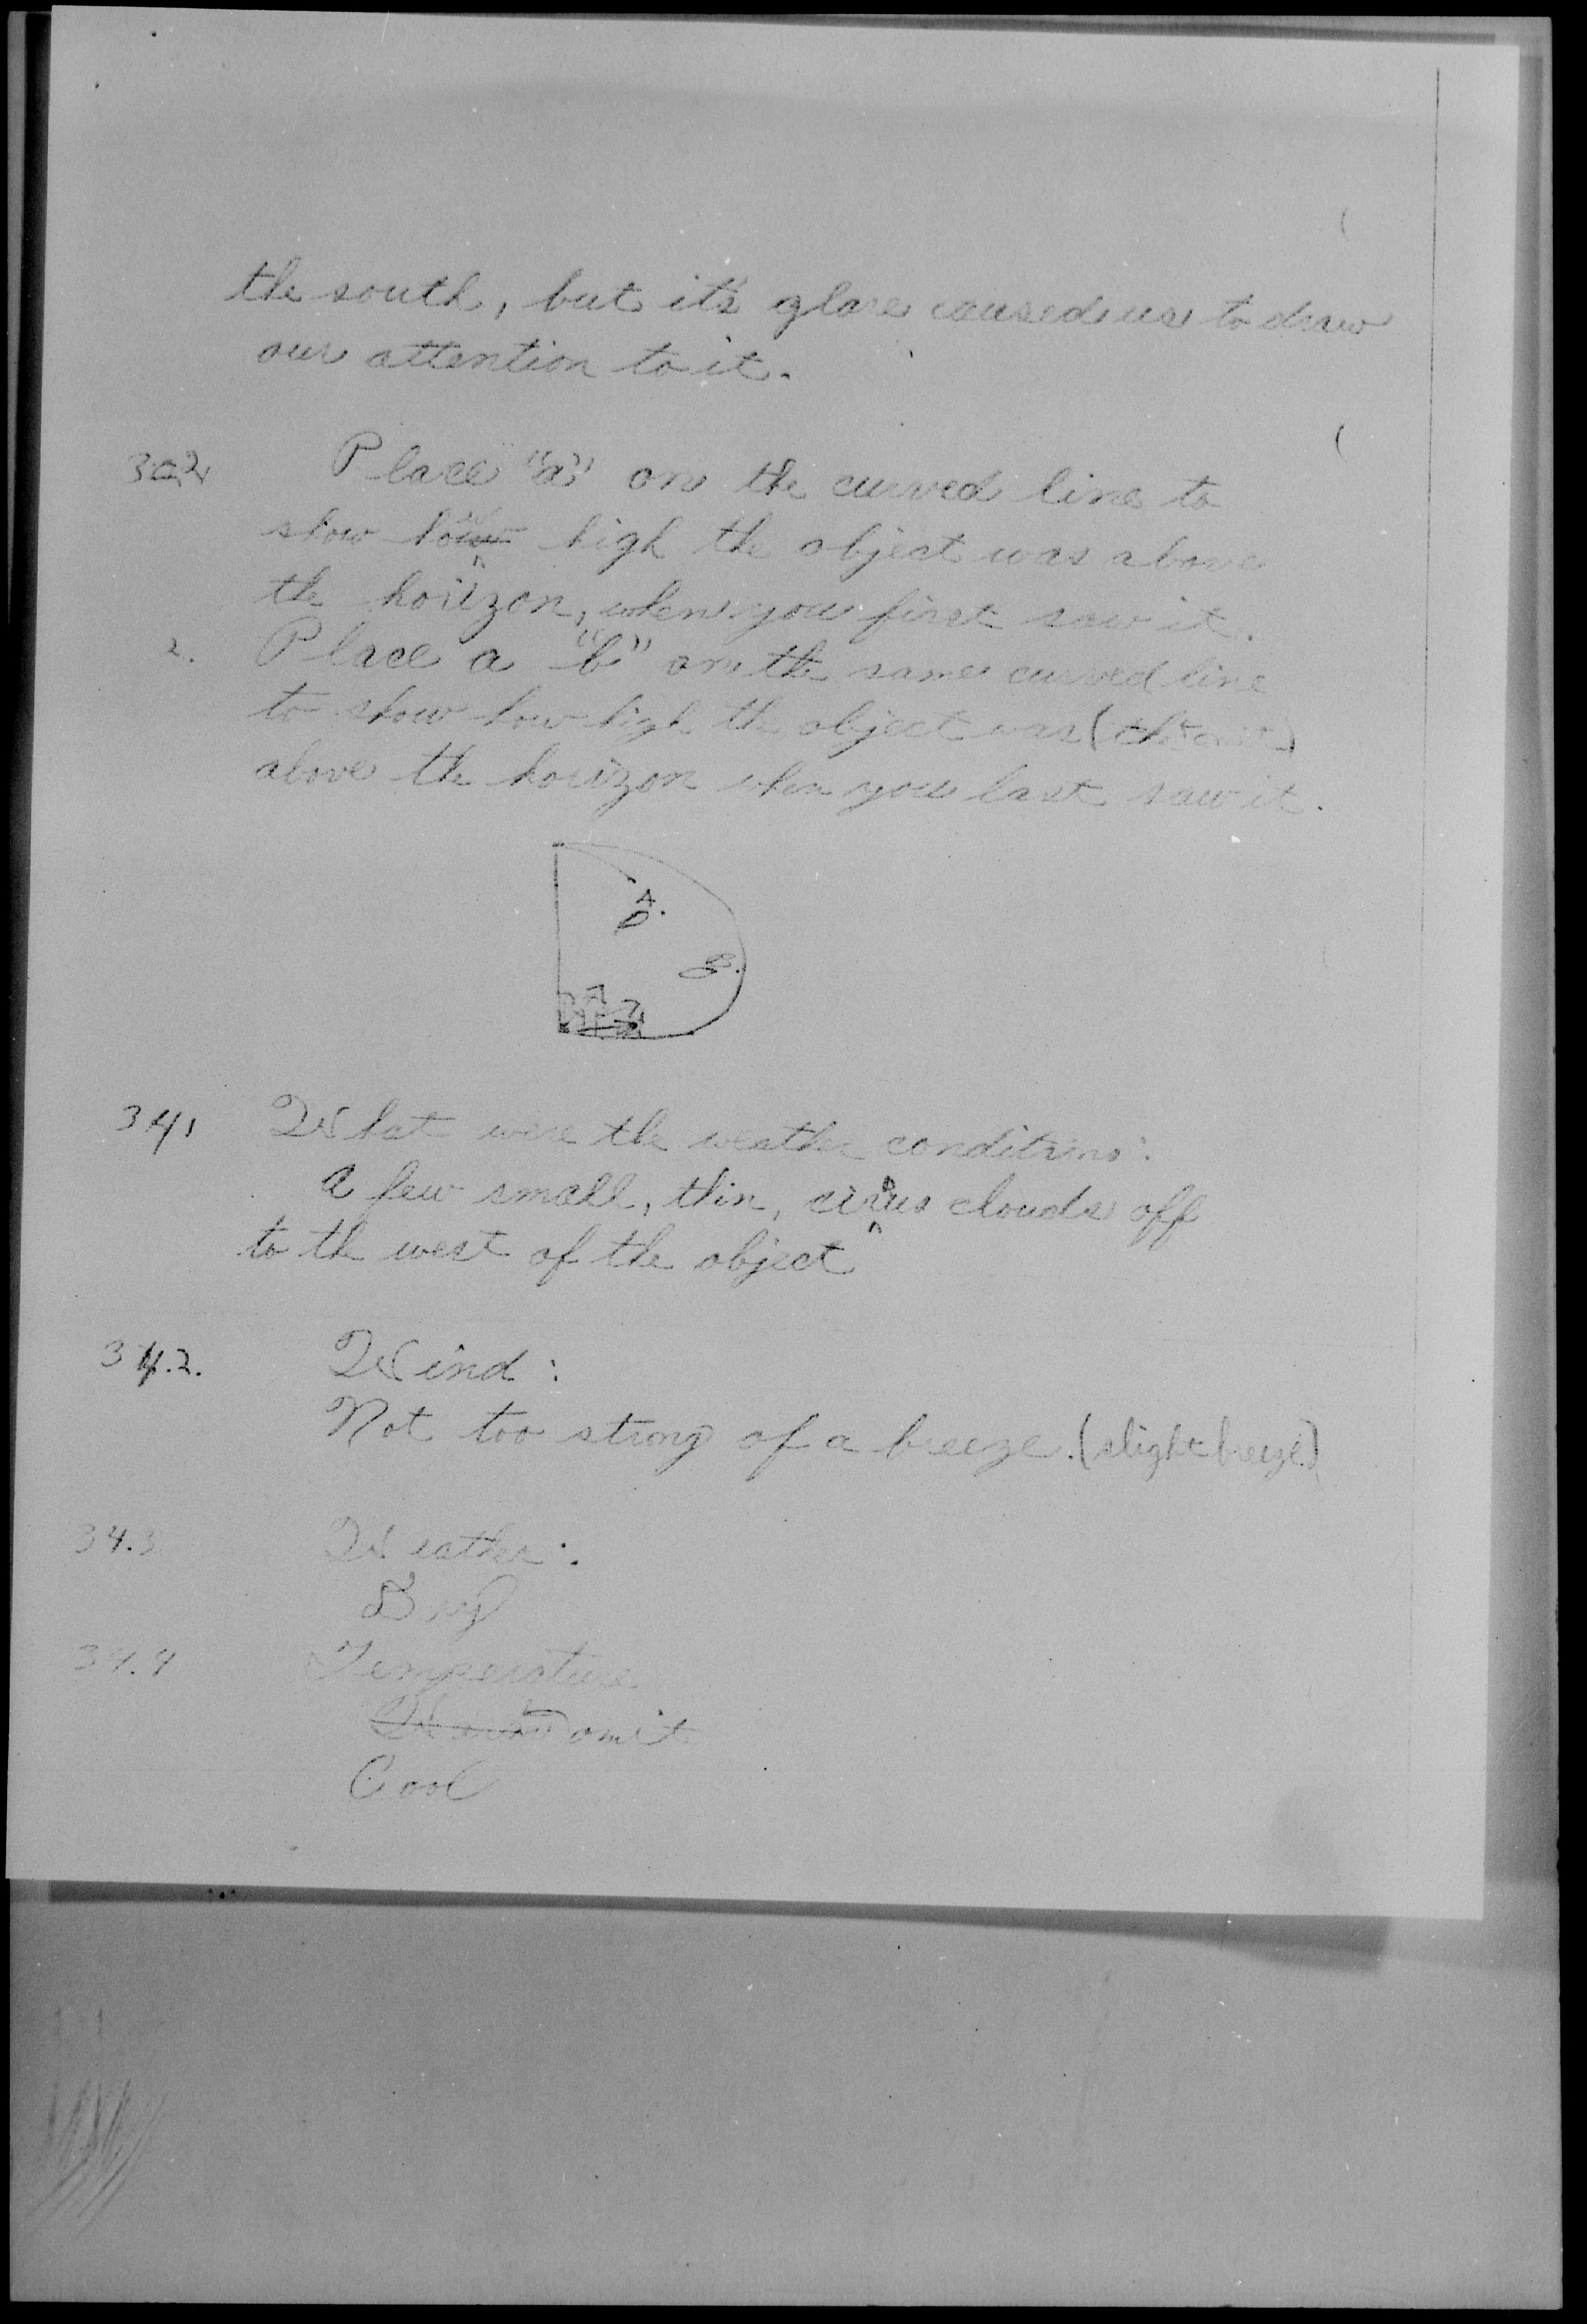 the south, but it's glare caused us to draw
our attention to it.
Place "a" on the curved line to
show how high the object was above
the horizon, when you first saw it.
2. Place a "b" on the same curved line
to show how high the object was (the omit)
above the horizon when you last saw it.
A.
B.
34, What were the weather conditions:
A few small, thin, cirrus clouds off
to the west of the object
34.2. Wind:
Not too strong of a breeze. (slight breeze)
34.3 Weather:
Dry
34.4 Temperature
omit
Cool